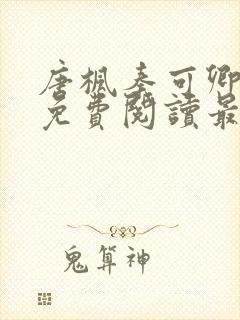 唐楓秦可卿
免費閱讀最
鬼算神